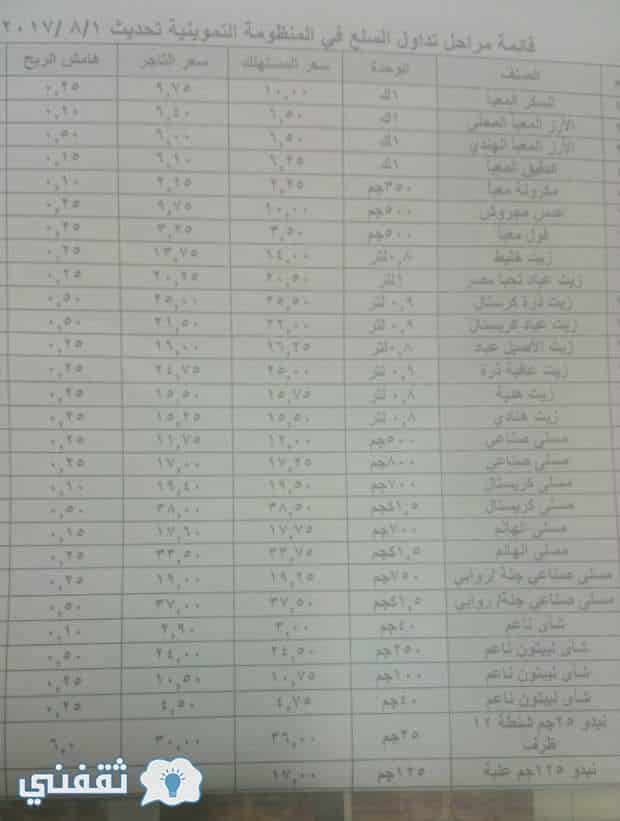 قائمة مراحل تداول السلع في المنظومة التموينية تحديث ٢٠١٧/ ٨/١
الصنف الوحدة سعر المستهلك سعر التاجر هامش الربح
السكر المعبأ ١ك ١٠,٠٠ ٩,٧٥ ٠,٢٥
الأرز المعبأ المحلي ١ك ٦,٥٠ ٦,٤٠ ٠,١٠
الأرز المعبأ الهندي ١ك ٦,٥٠ ٦,٠٠ ٠,٥٠
الدقيق المعبأ ١ك ٦,٢٥ ٦,١٠ ٠,١٥
مكرونة معبأ ٣٥٠جم ٢,٢٥ ٢,١٥ ٠,١٠
عدس مجروش ٥٠٠جم ١٠,٠٠ ٩,٧٥ ٠,٢٥
فول معبأ ٥٠٠جم ٣,٥٠ ٣,٢٥ ٠,٢٥
زيت خليط ٠,٨لتر ١٤,٠٠ ١٣,٧٥ ٠,٢٥
زيت عباد تحيا مصر ١لتر ٢٠,٥٠ ٢٠,٢٥ ٠,٢٥
زيت ذرة كرستال ٠,٩ لتر ٢٥,٥٠ ٢٥,٠٠ ٠,٥٠
زيت عباد كريستال ٠,٩ لتر ٢٢,٠٠ ٢١,٥٠ ٠,٥٠
زيت الأصيل عباد ٠,٨لتر ١٦,٢٥ ١٦,٠٠ ٠,٢٥
زيت عافية ذرة ٠,٩ لتر ٢٥,٠٠ ٢٤,٧٥ ٠,٢٥
زيت هدية ٠,٨ لتر ١٥,٧٥ ١٥,٥٠ ٠,٢٥
زيت هنادي ٠,٨ لتر ١٥,٥٠ ١٥,٢٥ ٠,٢٥
مسلى صناعي ٥٠٠جم ١٢,٠٠ ١١,٧٥ ٠,٢٥
مسلى صناعي ٨٠٠جم ١٧,٢٥ ١٧,٠٠ ٠,٢٥
مسلى كريستال ٧٠٠جم ١٩,٥٠ ١٩,٤٠ ٠,١٠
مسلى كريستال ١,٥كجم ٣٨,٥٠ ٣٨,٠٠ ٠,٥٠
مسلى الهانم ٧٠٠جم ١٧,٧٥ ١٧,٦٠ ٠,١٥
مسلى الهانم ١,٥كجم ٣٣,٧٥ ٣٣,٥٠ ٠,٢٥
مسلى صناعي جنة /روابي ٧٥٠جم ١٩,٢٥ ١٩,٠٠ ٠,٢٥
مسلى صناعي جنة/ روابي ١,٥كجم ٣٧,٥٠ ٣٧,٠٠ ٠,٥٠
شاى ناعم ٤٠جم ٣,٠٠ ٢,٩٠ ٠,١٠
شاى ليبتون ناعم ٢٥٠جم ٢٤,٥٠ ٢٤,٠٠ ٠,٥٠
شاى ليبتون ناعم ١٠٠جم ١٠,٧٥ ١٠,٥٠ ٠,٢٥
شاى ليبتون ناعم ٤٠جم ٤,٧٥ ٤,٥٠ ٠,٢٥
نيدو ٢٥جم شنطة ١٢ ظرف ٢٥جم ٣٦,٠٠ ٣٠,٠٠ ٦,٠
نيدو ١٢٥جم علبة ١٢٥جم ١٧,٠٠
ثقفني